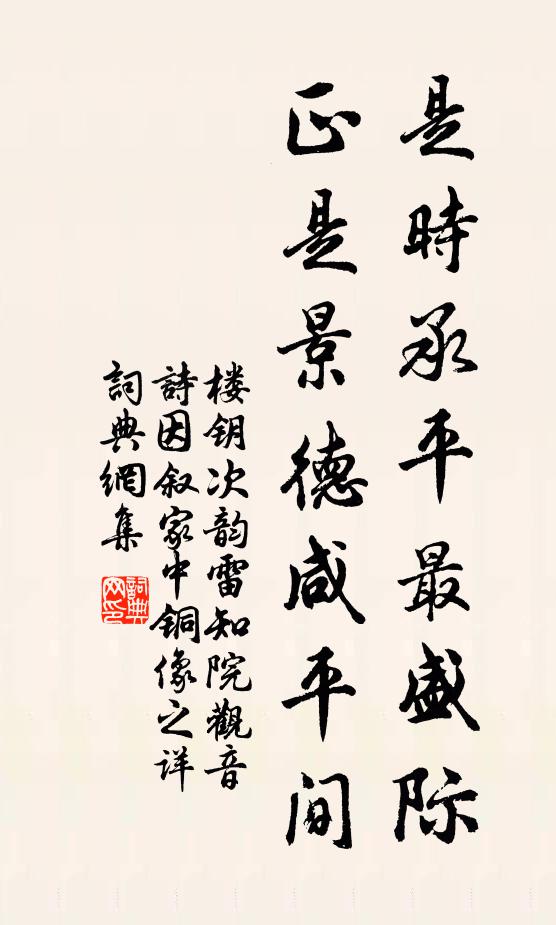 是時承平最盛际
正是景德咸平间
楼钥次韵雷知院觀音
詩因叙家中銅像之详
詞典網集
詞典网印